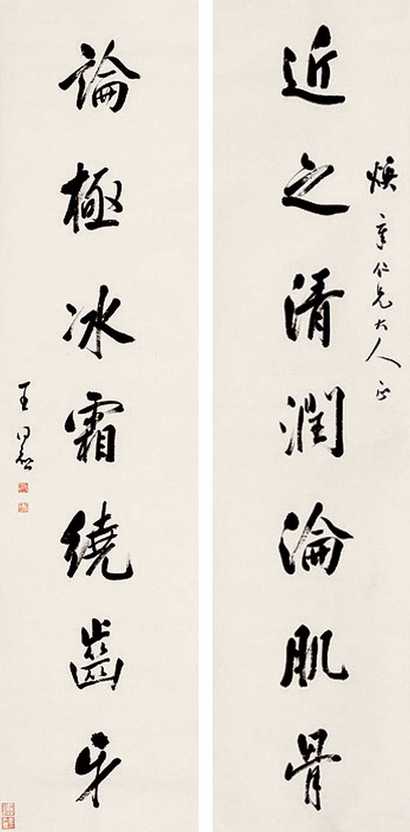 近之清潤淪肌骨
煥章仁兄大人正
論極冰霜繞齒牙
王同愈